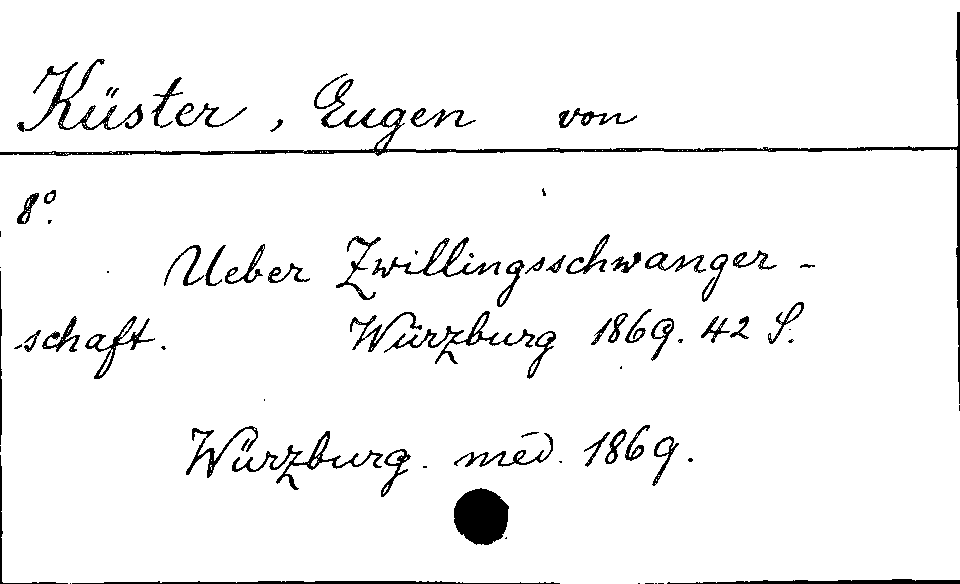 Küster, Eugen von
8°.
Ueber Zwillingsschwanger-
schaft. Würzburg 1869. 42 S.
Würzburg. med. 1869.